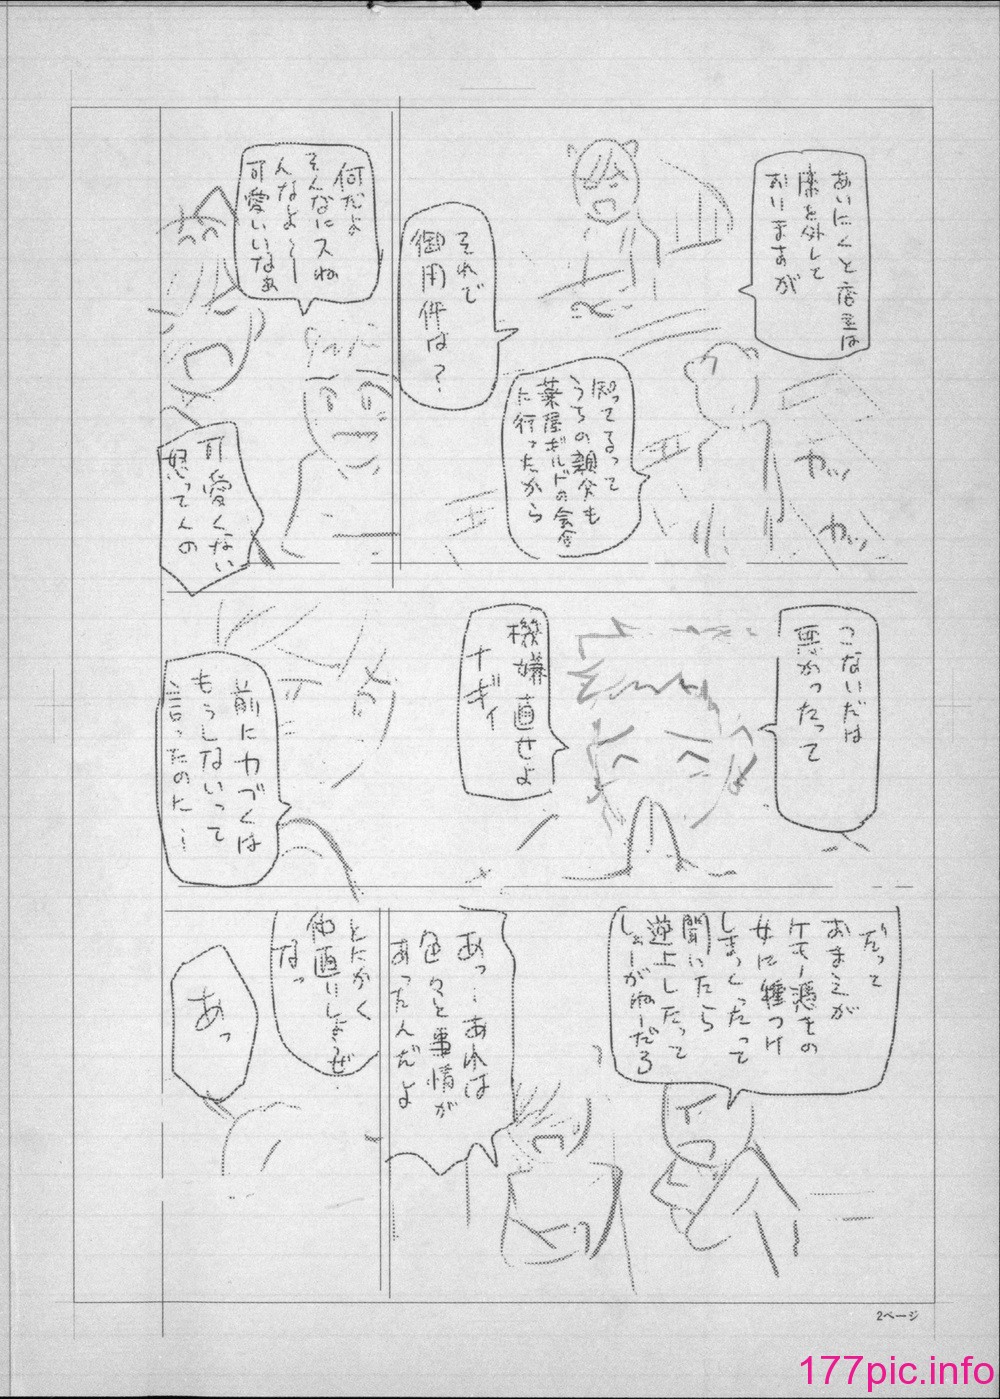 あいにくと店主は
席を外して
おりますが
知ってるって
うちの親父も
薬屋ギルドの会合
に行ったから
カッ
カッ
それで
御用件は?
何だよ
そんなにスね
んなよ〜
可愛いいなぁ
可愛くない
怒ってんの
こないだは
悪かったって
機嫌直せよ
ナギィ
前に力づくは
もうしないって
言ったのに…
だって
おまえが
ケモノ憑きの
女に種つけ
しまくったって
聞いたら
逆上したって
しょーがねーだろ
あっ…あれは
色々と事情が
あったんだよ
とにかく
仲直りしようぜ
なっ
あっ
2ページ
177pic.info